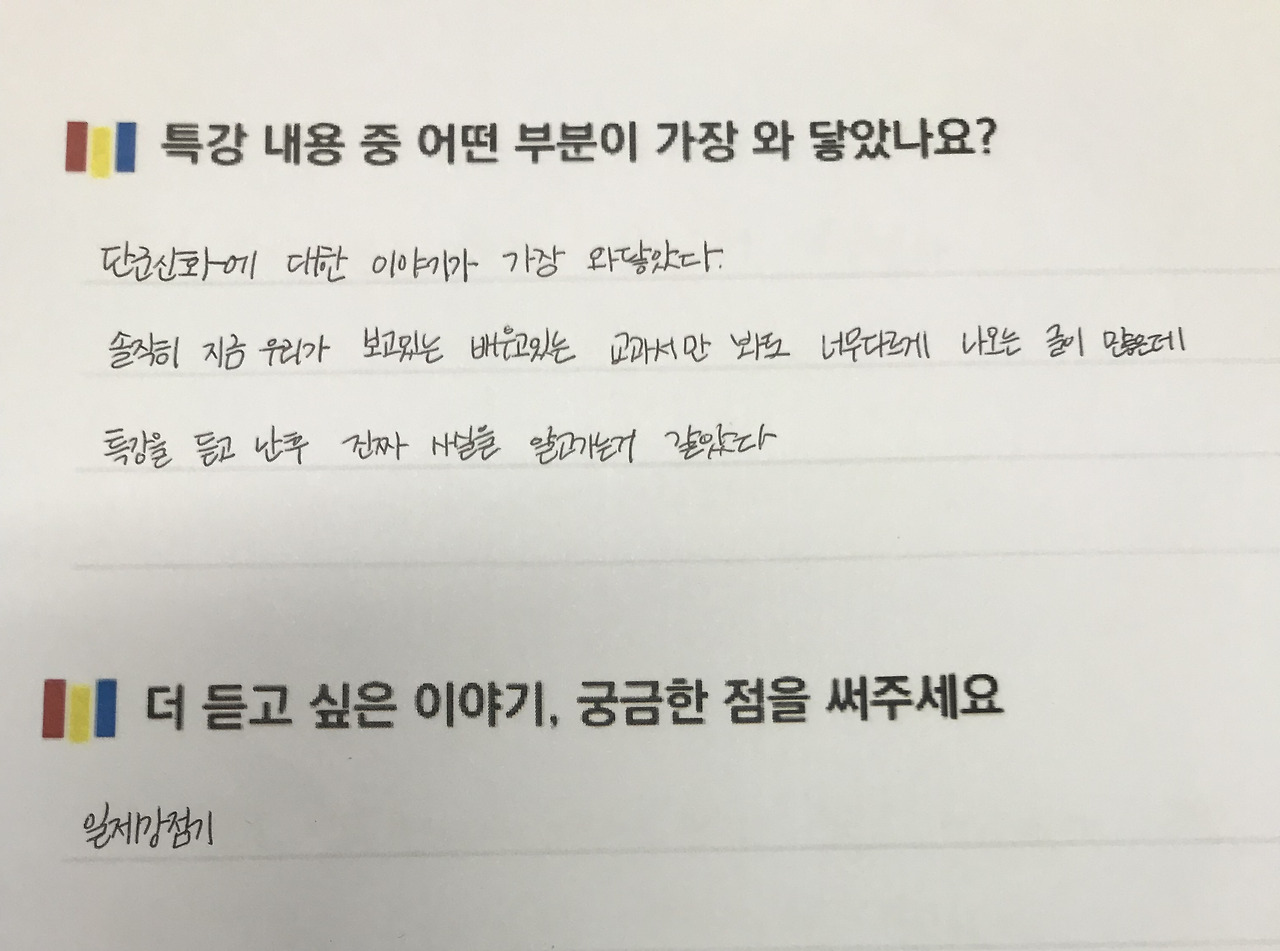 특강 내용 중 어떤 부분이 가장 와 닿았나요?
단군신화에 대한 이야기가 가장 와닿았다.
솔직히 지금 우리가 보고있는 배우고있는 교과서만 봐도 너무다르게 나오는 글이 많은데
특강을 듣고 난후 진짜 사실을 알고가는거 같았다
더 듣고 싶은 이야기, 궁금한 점을 써주세요
일제강점기